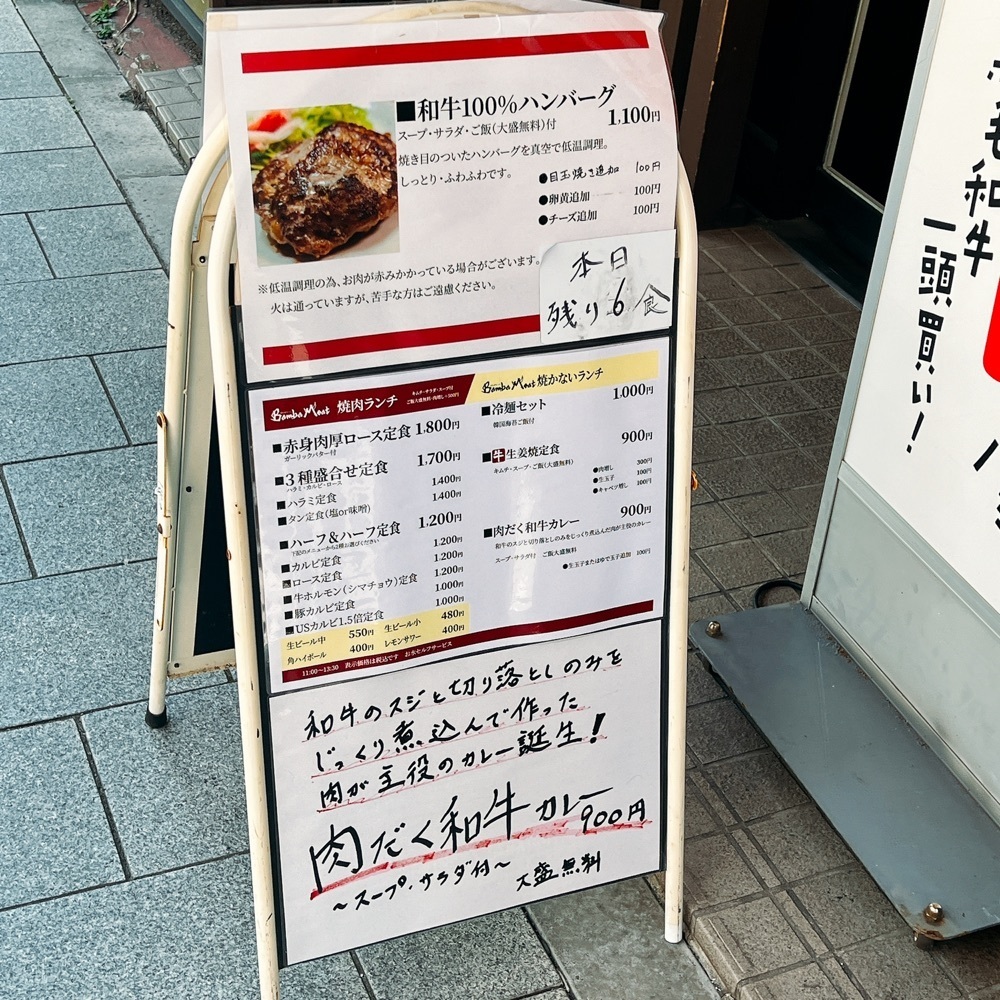 ■和牛100%ハンバーグ
1,100円
スープ・サラダ・ご飯(大盛無料)付
焼き目のついたハンバーグを真空で低温調理。
しっとり・ふわふわです。
●目玉焼き追加 100円
●卵黄追加 100円
●チーズ追加 100円
※低温調理の為、お肉が赤みかかっている場合がございます。
火は通っていますが、苦手な方はご遠慮ください。
本日
残り6食
Bamba Meat 焼肉ランチ
キムチ・サラダ・スープ付
■赤身肉厚ロース定食 1,800円
ガーリックバター付
■3種盛合せ定食 1,700円
ハラミ・カルビ・ロース
■ハラミ定食 1.400円
■タン定食(塩or味噌) 1.400円
■ハーフ&ハーフ定食 1,200円
下記のメニューから2種お選びください
■カルビ定食 1.200円
■ロース定食 1.200円
■牛ホルモン(シマチョウ)定食 1.200円
■豚カルビ定食 1.000円
■USカルビ1.5倍定食 1.000円
生ビール中 550円 生ビール小 480円
角ハイボール 400円 レモンサワー 400円
11:00〜13:30 表示価格は税込です お水セルフサービス
Bamba Meat 焼かないランチ
■冷麺セット 1.000円
韓国海苔ご飯付
■牛生姜焼定食 900円
キムチ・スープ・ご飯(大盛無料)
●肉増し 300円
●生玉子 100円
●キャベツ増し 100円
■肉だく和牛カレー 900円
和牛のスジと切り落としのみをじっくり煮込んだ肉が主役のカレー
スープ・サラダ付 ご飯大盛無料
●生玉子またはゆで玉子追加 100円
和牛のスジと切り落としのみを
じっくり煮込んで作った
肉が主役のカレー誕生!
肉だく和牛カレー
900円
〜スープ・サラダ付〜
大盛無料
毛和牛
一頭買い!